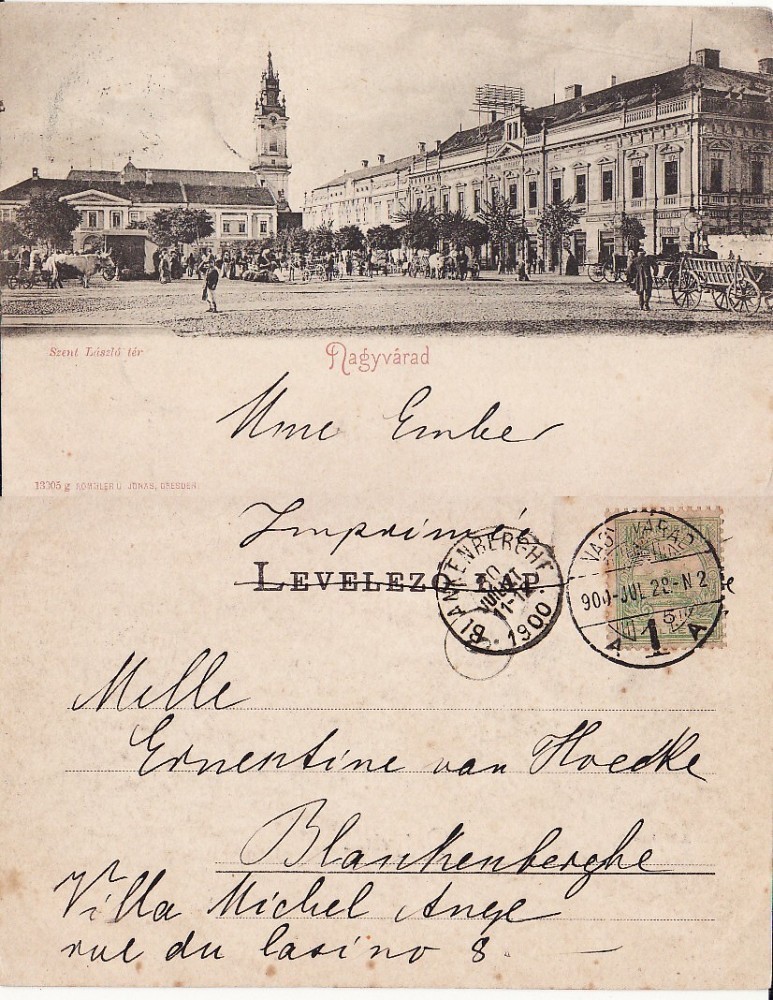 Szent László tér
Nagyvárad
Mme Ember
13905 g RÖMMLER U. JONAS, DRESDEN
Imprimée
LEVELEZŐ LAP
BLANKENBERGHE
30
JUILLET
11-12
1900
NAGYVÁRAD
900-JUL 28-N 2
A 1 A
Mlle
Ernestine van Hoecke
Blankenberghe
Villa Michel Ange
rue du Casino 8.